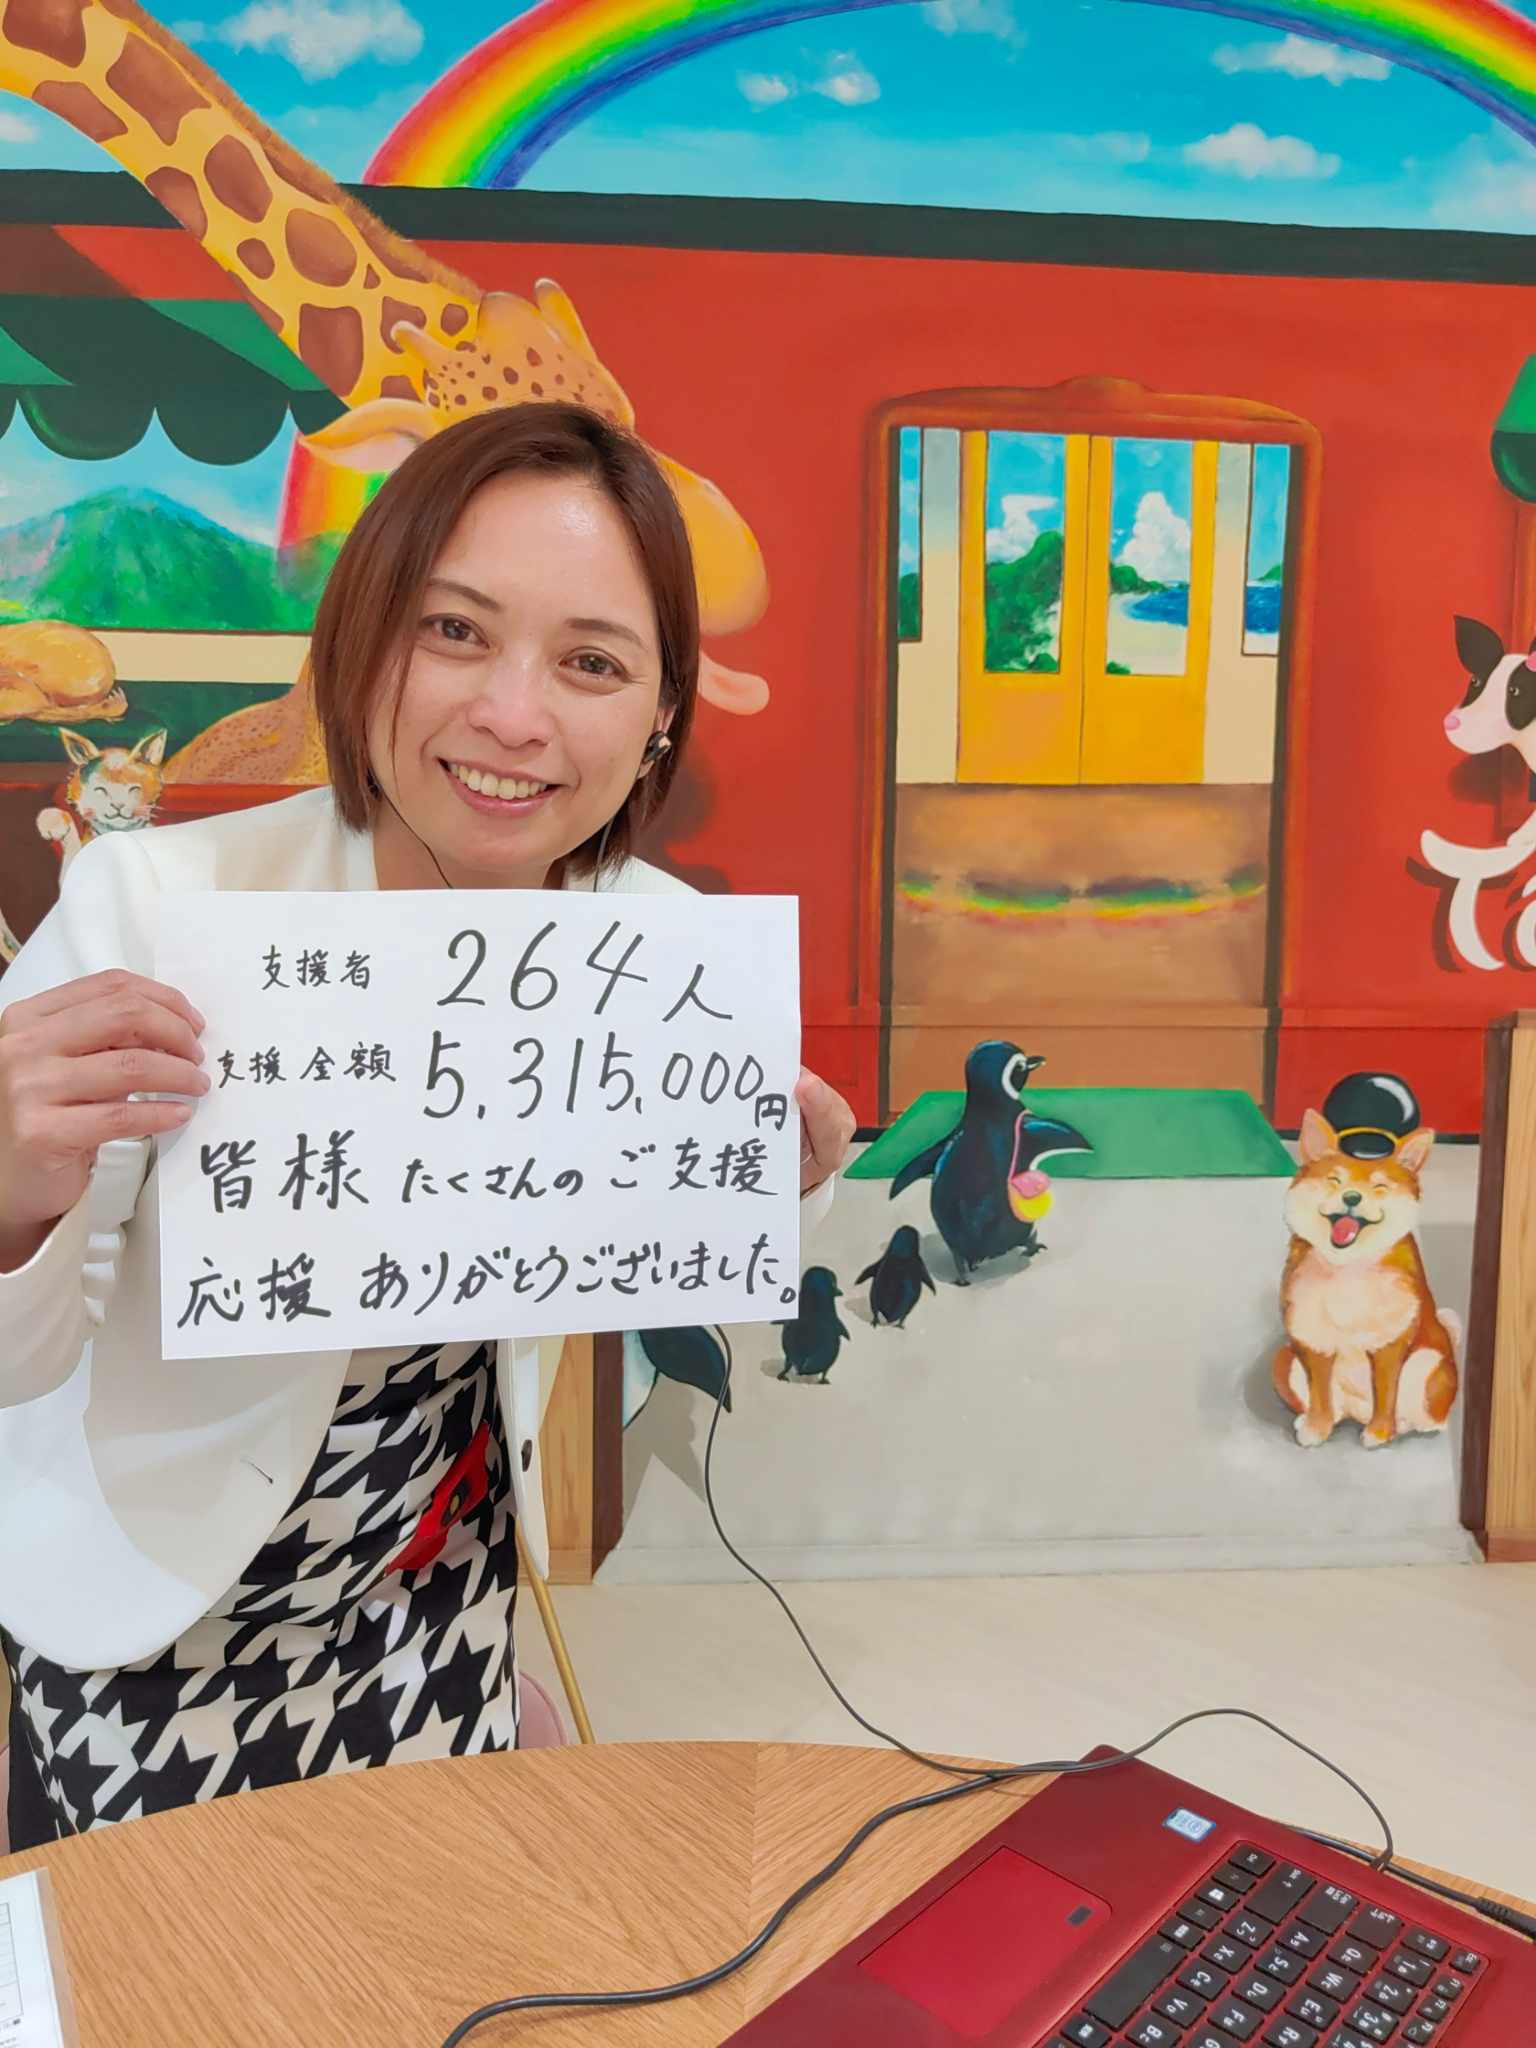 支援者 264人
支援金額 5,315,000円
皆様たくさんのご支援
応援ありがとうございました。
Ta